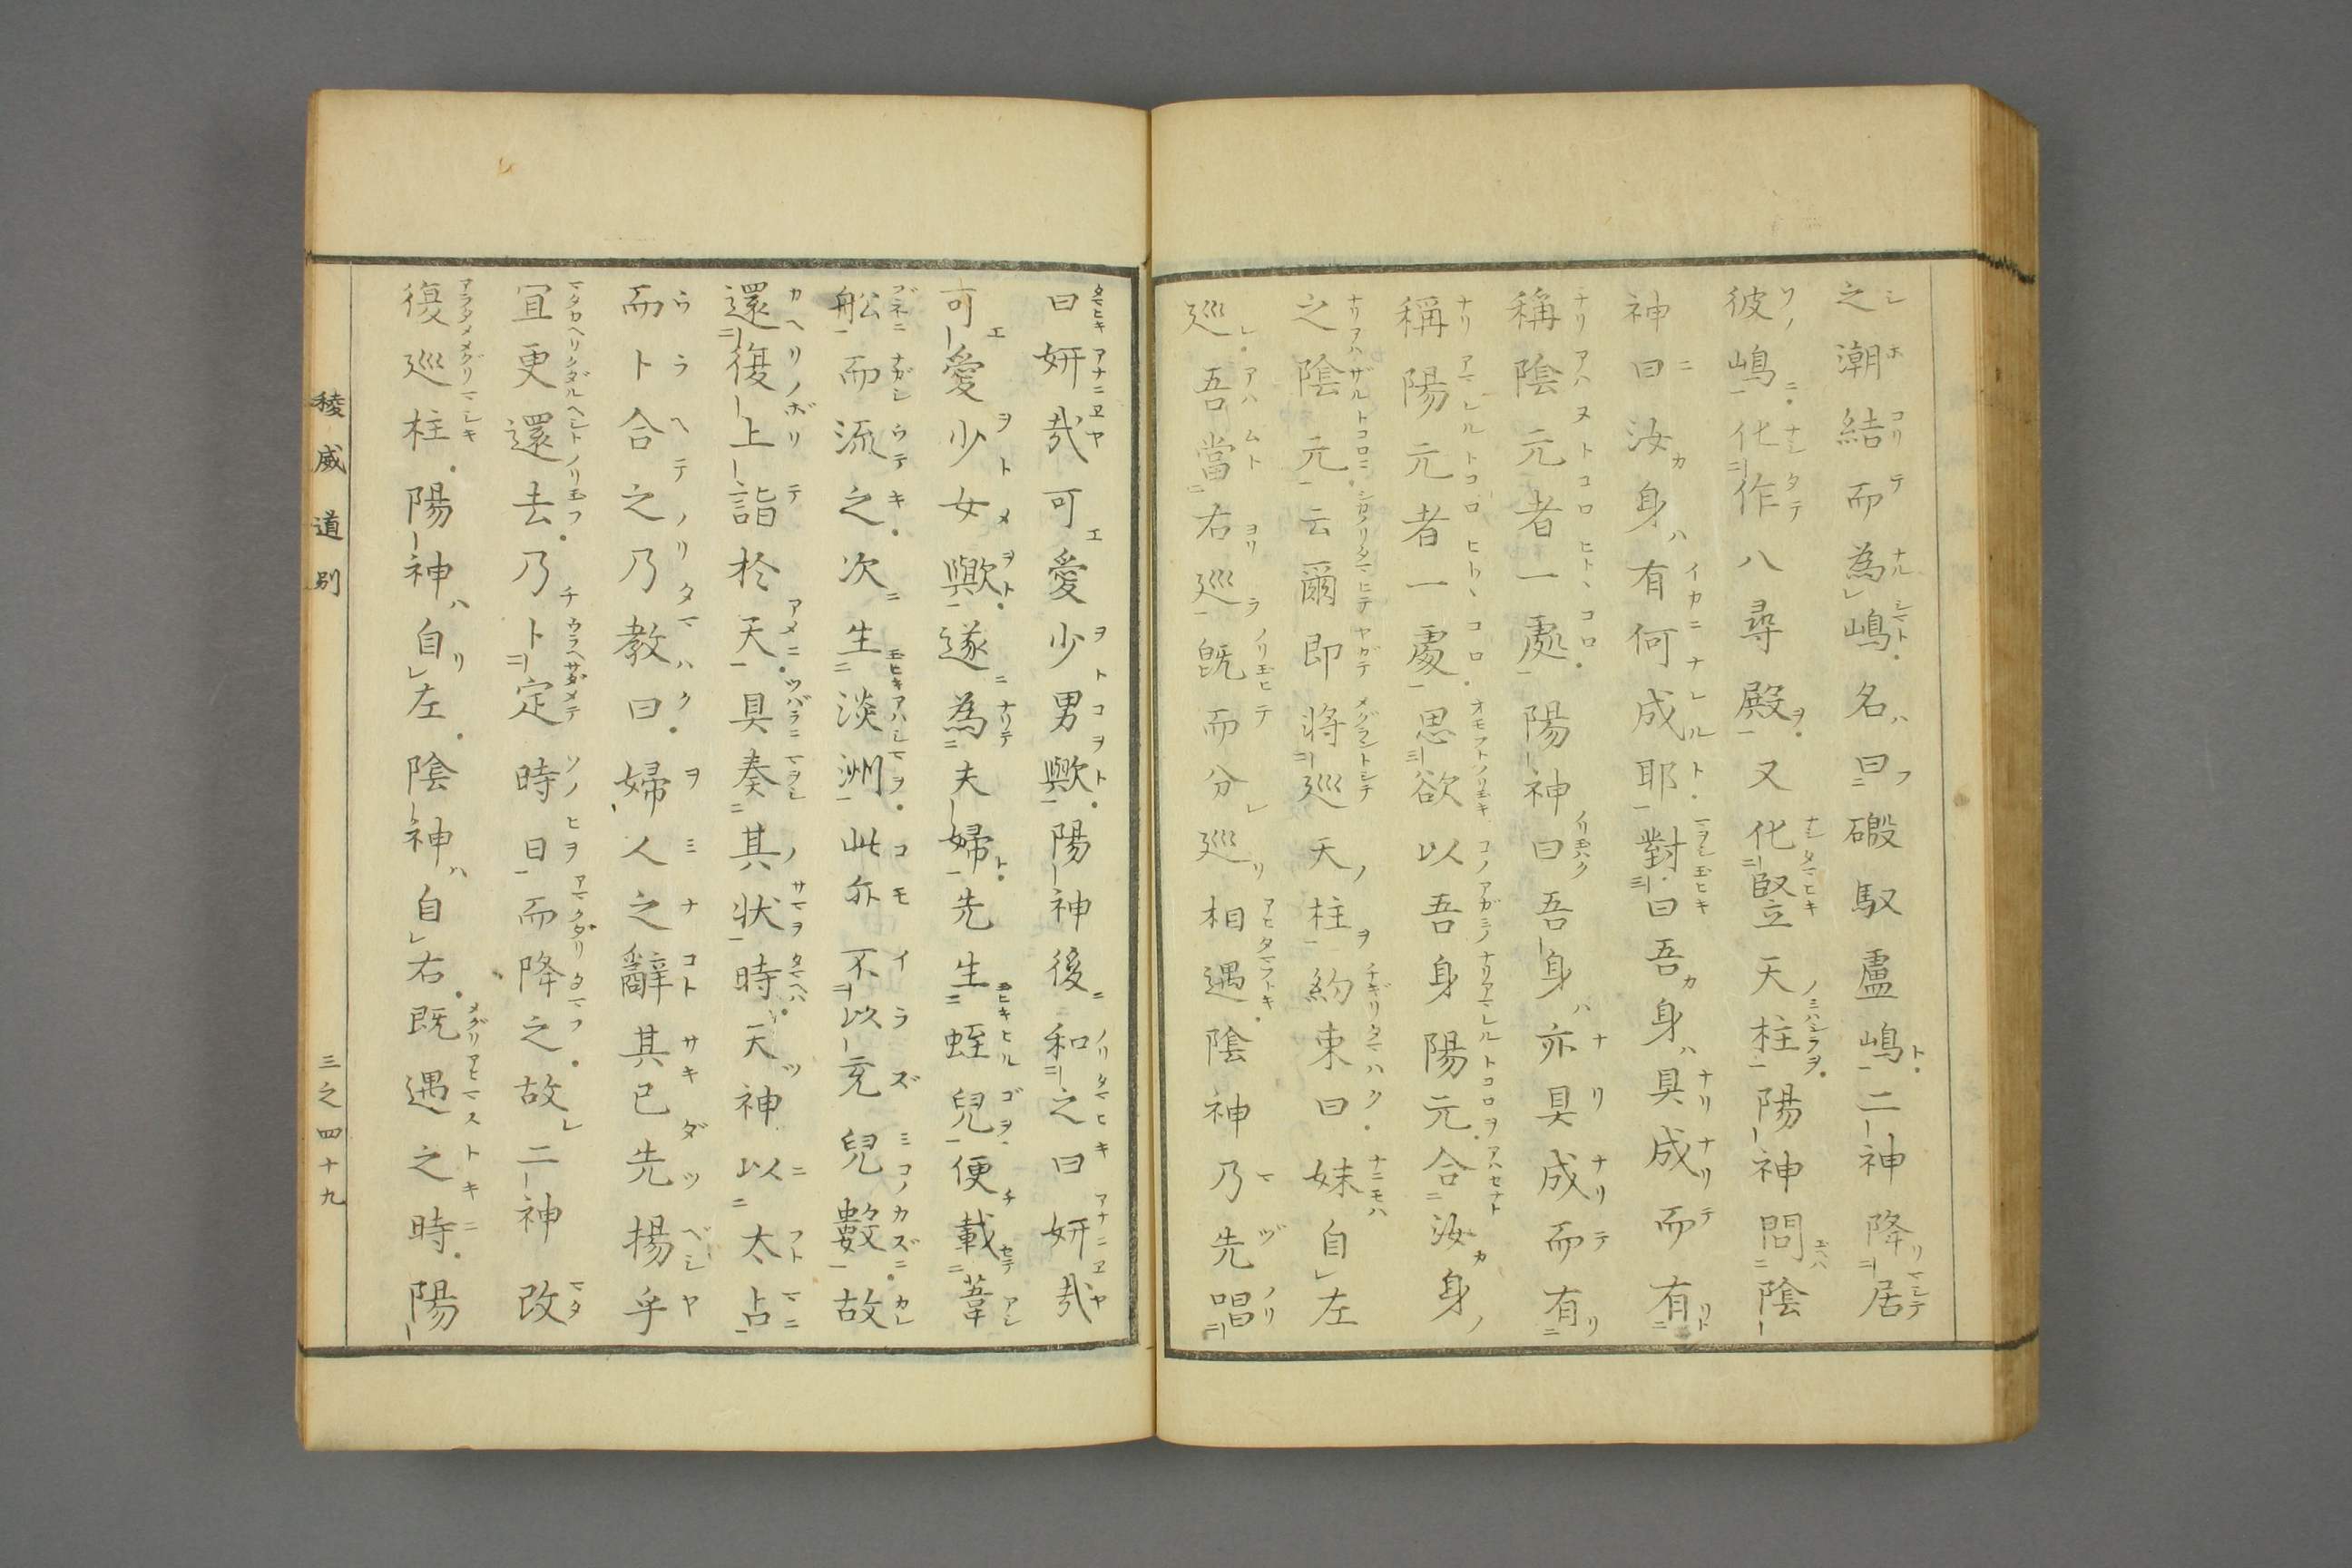 之潮結而為嶋名曰磤馭盧嶋二神降居
彼嶋化作八尋殿又化竪天柱陽神問陰
神曰汝身有何成耶對曰吾身具成而有
稱陰元者一處陽神曰吾身亦具成而有
稱陽元者一處思欲以吾身陽元合汝身
之陰元云爾即将巡天柱約束曰妹自左
巡吾當右巡既而分巡相遇陰神乃先唱
曰妍哉可愛少男歟陽神後和之曰妍哉
可愛少女歟遂為夫婦先生蛭兒便載葦
舩而流之次生淡洲此亦不以充兒數故
還復上詣於天具奏其状時天神以太占
而卜合之乃教曰婦人之辭其已先揚乎
宜更還去乃卜定時日而降之故二神改
復巡柱陽神自左陰神自右既遇之時陽
稜威道別
三之四十九